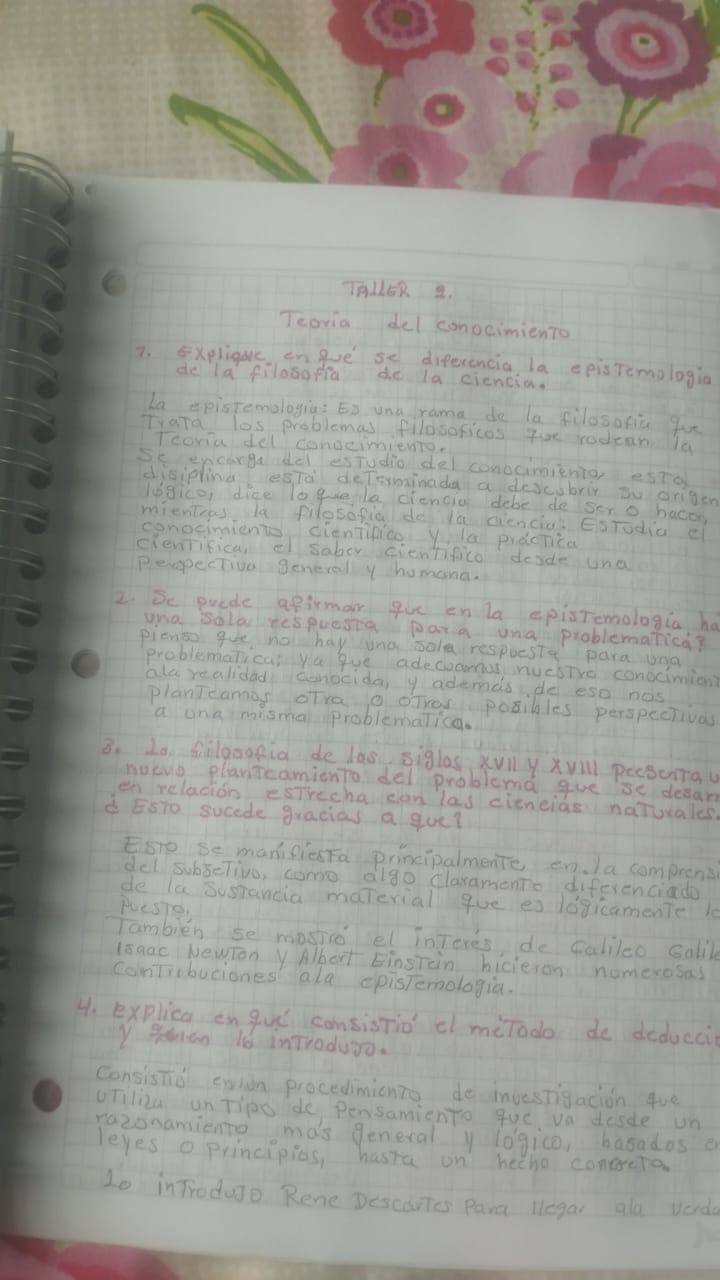 TALLER 2.
Teoría del conocimiento
1. Explique en qué se diferencia la epistemologia
de la filosofía de la ciencia.
La epistemología: Es una rama de la filosofía que
Trata los problemas filosoficos que rodean la
Teoría del conocimiento.
Se encarga del estudio del conocimiento, esta
disiplina está determinada a descubrir su origen
lógico, dice lo que la ciencia debe de ser o hacer,
mientras la filosofía de la ciencia: Estudia el
conocimiento científico y la práctica
científica, el saber científico desde una
perspectiva general y humana.
2. Se puede afirmar que en la epistemología ha
una sola respuesta para una problematica?
pienso que no hay una sola respuesta para una
problematica; ya que adecuamos nuestro conocimien
ala realidad conocida, y además de eso nos
planteamos otra o otras posibles perspectivas
a una misma problematica.
3. La filosofía de los siglos XVII y XVIII presenta u
nuevo planteamiento del problema que se desar
en relación estrecha con las ciencias naturales.
¿Esto sucede gracias a que?
Esto se manifiesta principalmente en la comprens
del subsetivo, como algo claramente diferenciado
de la sustancia material que es lógicamente lo
puesto,
También se mostró el interés de Galileo Galile
Isaac Newton y Albert Einstein hicieron numerosas
contribuciones ala epistemologia.
4. explica en qué consistió el método de deducci
y quien lo introdujo.
Consistió en un procedimiento de investigación que
utiliza un tipo de pensamiento que va desde un
razonamiento más general y lógico, basados e
leyes o principios, hasta un hecho concreto.
lo introdujo Rene Descartes para llegar ala verda